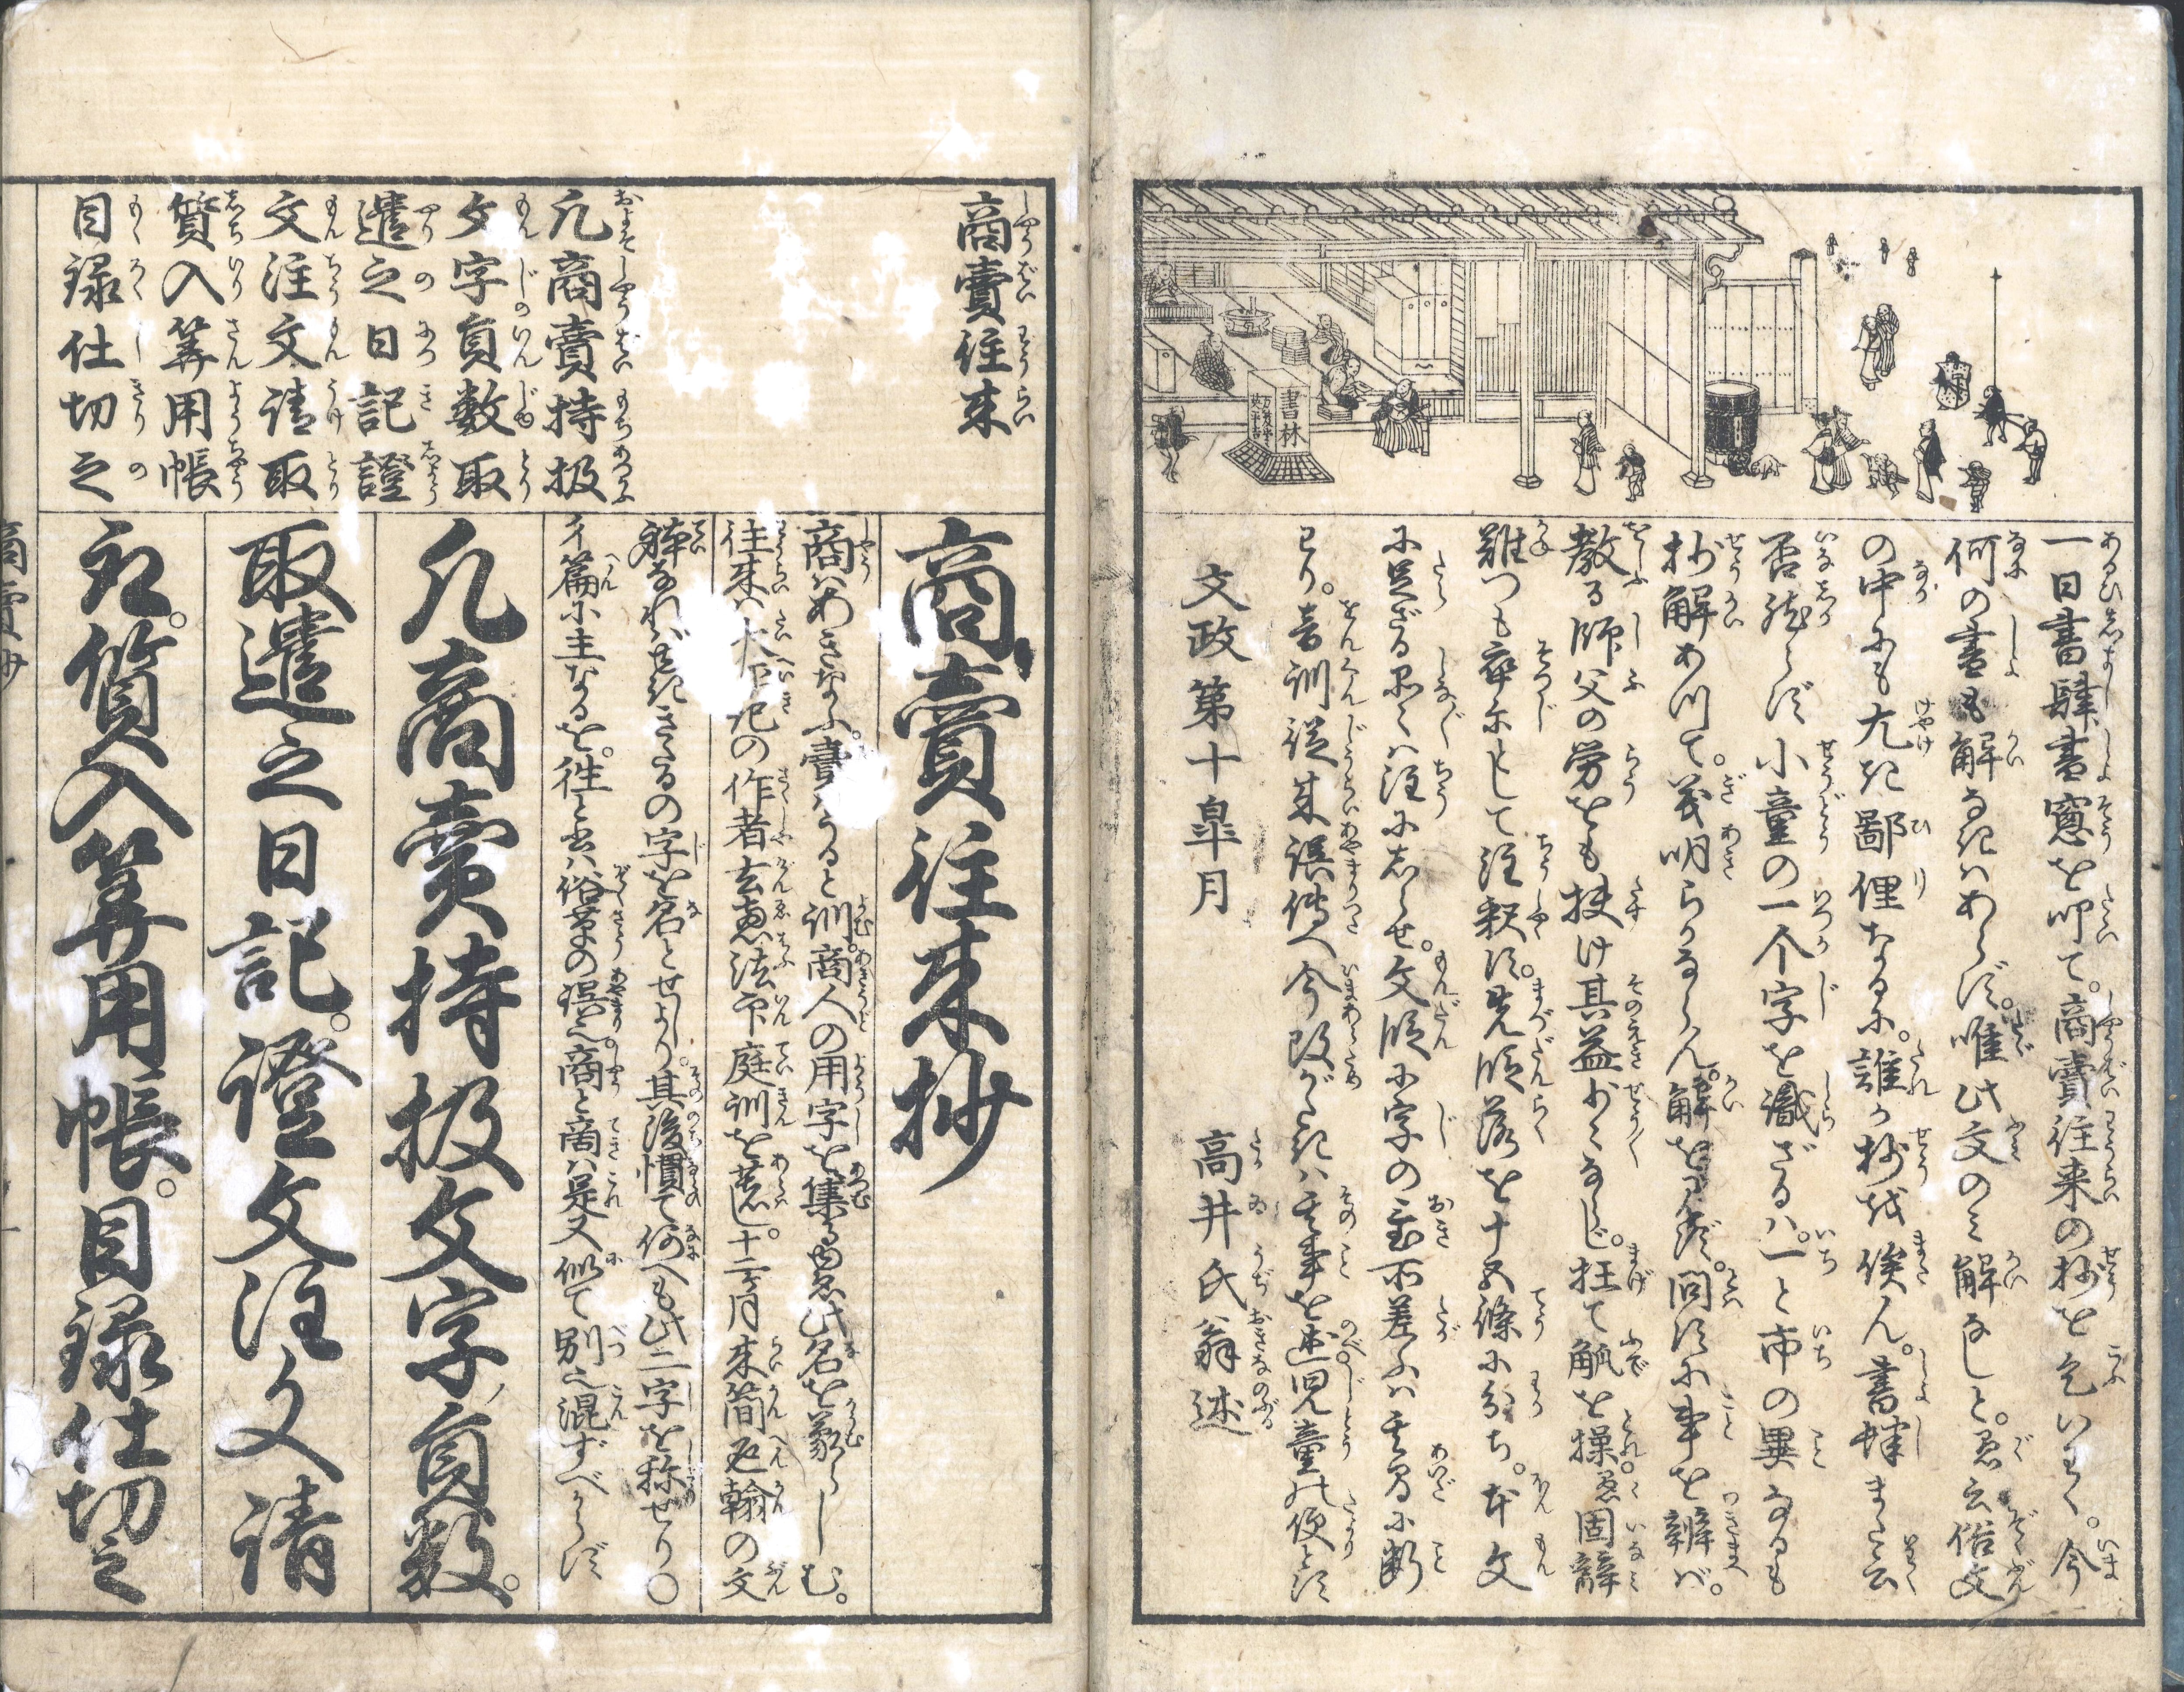 書林
一日書肆書窓を叩て。商賣往来の抄を乞いわく。今
何の書も解なきはあらず。唯此文のミ解なしと。愚云俗文
の中にも尤き鄙俚なるに。誰か抄を俟ん。書肆また云
否然らず小童の一个字を識ざるハ。一と市の異なるも
抄解あつて。義明らかならん。解を見ず。問ずに事を辨バ。
教る師父の労をも扶け其益少くなし。枉て觚を操。愚固辞
難つも卒尓として注釈す。先段落を十五條に分ち。本文
に足ざる処々ハ注にしらせ。文段に字の置所差ふハ其間に断
已り。音訓従来誤傳へ今改がたきハ其事を述。児童の便とす
文政第十皐月
高井氏翁述
商賣往来
凡商賣持扱
文字員数取
遣之日記證
文注文請取
質入算用帳
目録仕切之
商賣往来抄
商ハあきなふ。賣ハうると訓。商人の用字を集るゆゑ此名を蒙らしむ。
往来ハ太平記の作者玄恵法印庭訓を著し。十二ヶ月来簡返翰の文
躰なれバゆきゝたるの字を名とせしより。其後慣て何へも此二字を称せり〇
彳篇に主なるを。徃と云ハ俗草の誤也。商と啇ハ是又似て別也混ずべからず
凡商賣持扱文字員数。
取遣之日記。證文注文請
取。質入算用帳。目録仕切之
商賣抄
一